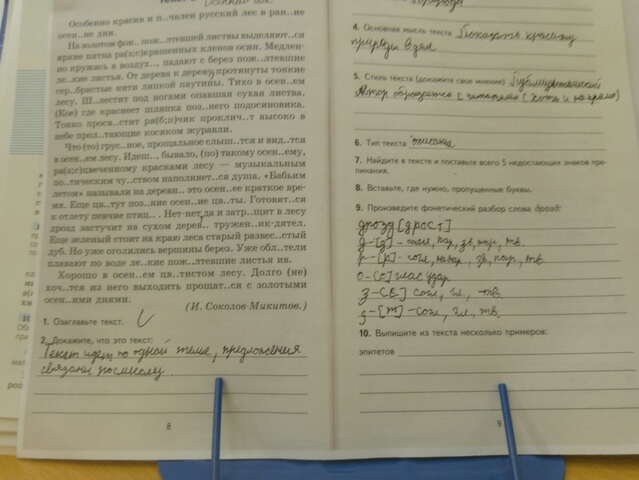 Особенно красив и п..чален русский лес в ран..ие
осен..ие дни.
На золотом фон.. пож..лтевшей листвы выделяют..ся
яркие пятна ра(с)крашенных кленов осин. Медлен-
но кружась в воздух.., падают с берез пож..лтевшие
ле..кие листья. От дерева к дереву протянуты тонкие
сер..бристые нити липкой паутины. Тихо в осен..ем
лесу. Ш..лестит под ногами опавшая сухая листва,
(Кое) где краснеет шляпка поз..него подосиновика.
Тонко прося..стит ря(б,п)чик проклич..т высоко в
небе прол..тающие косяком журавли.
Что (то) грус..ное, прощальное слыш..тся и вид..тся
в осен..ем лесу. Идеш.., бывало, (по) такому осен..ему,
ра(з,с)цвеченному красками лесу — музыкальным
по..тическим чу..ством наполняет..ся душа. «Бабьим
летом» называли на деревн.. это осен..ее краткое вре-
мя. Еще цв..тут поз..ние осен..ие цв..ты. Готовят..ся
к отлету певчие птиц.. . Нет-нет да и затр..щит в лесу
дрозд застучит на сухом дерев.. тружен..ик-дятел.
Еще зеленый стоит на краю леса старый развес..стый
дуб. Но уже оголились вершины берез. Уже обл..тели
плавают по воде ле..кие пож..лтевшие листья ив.
Хорошо в осен..ем ц..тистом лесу. Долго (не)
хоч..тся из него выходить прощат..ся с золотыми
осен..ими днями.
(И. Соколов-Микитов.)
1. Озаглавьте текст.
2. Докажите, что это текст:
Текст идет по одной теме, предложения
связаны по смыслу.
8
4. Основная мысль текста Показать красоту
природы
5. Стиль текста (докажите свое мнение) Публицистический
Автор обращается с читателю
6. Тип текста описание
7. Найдите в тексте и поставьте всего 5 недостающих знаков пре-
пинания.
8. Вставьте, где нужно, пропущенные буквы.
9. Произведите фонетический разбор слова дрозд:
дрозд [дрост]
д-[д] - согл, пар, зв, пар, тв.
р-[р] - согл, непар, зв, пар, тв.
о-[о] глас удар
з-[с] согл, гл, тв.
д-[т] -согл, гл, тв.
10. Выпишите из текста несколько примеров:
эпитетов
9